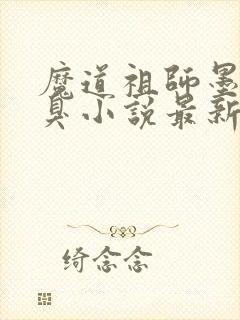 魔道祖師墨
臭小説最新
绮念念